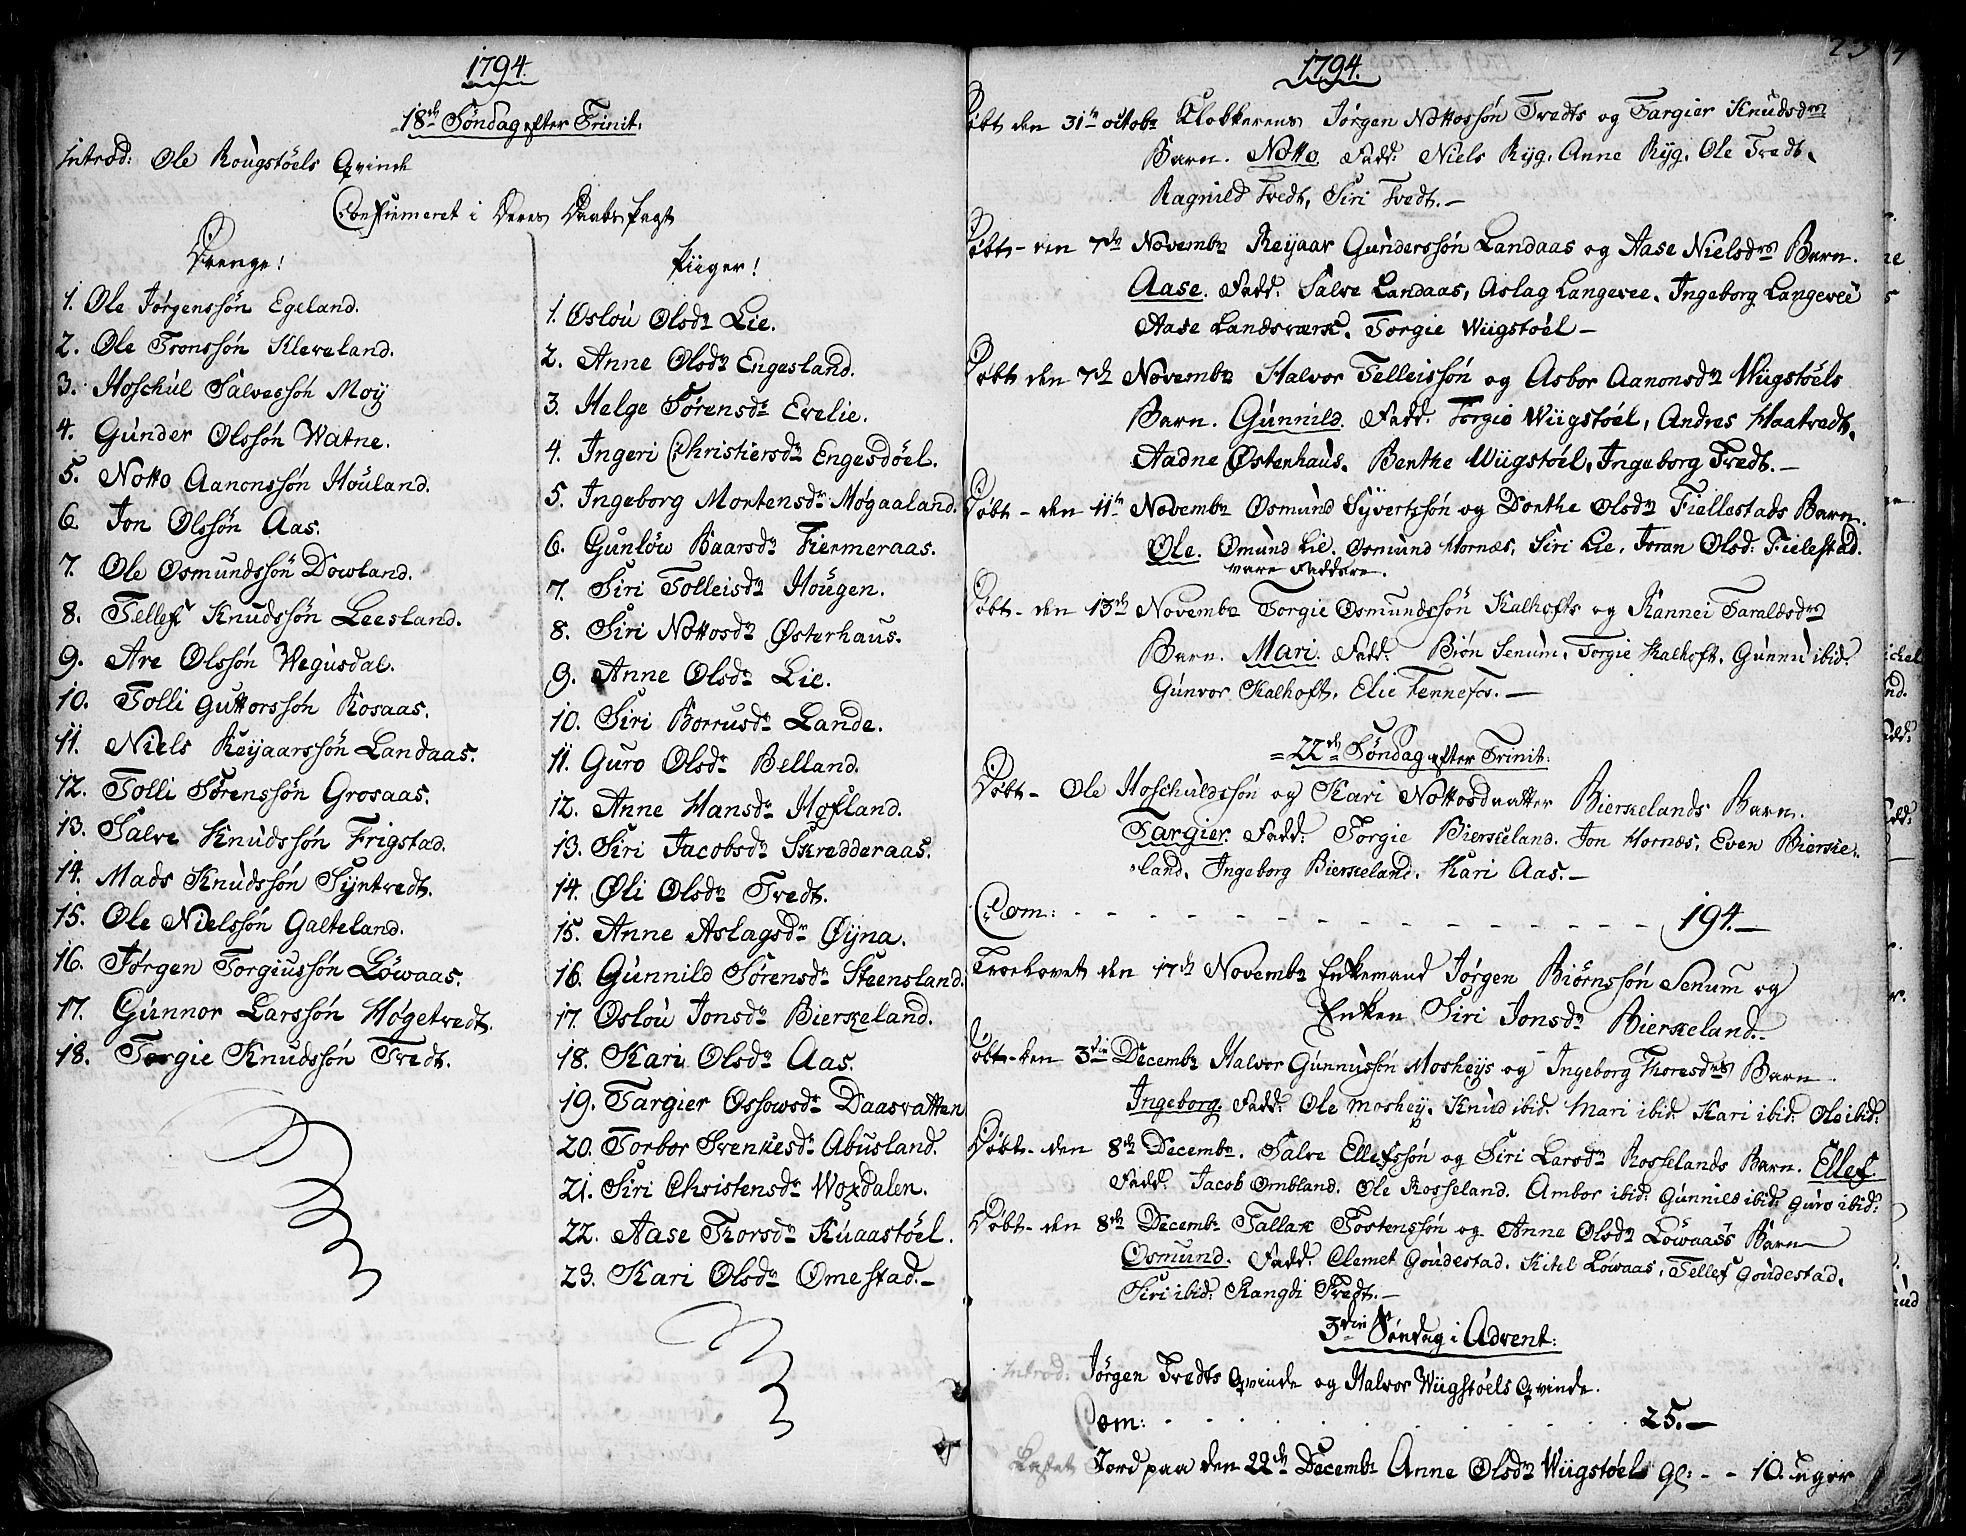 1794.
18de Søndag efter Trinit:
Introd: Ole Røugstøels Qvinde
Confirmeret i Deres Daabs Pagt
Drenge!
1. Ole Jørgenssøn Egeland.
2. Ole Tronssøn Kleveland.
3. Hoschul Salvessøn Moÿ
4. Gunder Olssøn Watne.
5. Notto Aanonssøn Houland.
6. Jon Olssøn Aas.
7. Ole Osmundssøn Dowland.
8. Tellef Knudssøn Leesland.
9. Are Olssøn Wegusdal.
10. Tolli Guttorssøn Rosaas.
11. Niels Reÿaarssøn Landaas.
12. Tolli Sørenssøn Grosaas.
13. Salve Knudssøn Frigstad.
14. Mads Knudssøn Sÿntvedt.
15. Ole Nielssøn Galteland.
16. Jørgen Torgiussøn Løwaas.
17. Gunnor Larssøn Høgetvedt.
18. Torgie Knudssøn Tvedt.
Piiger!
1. Oslou Olsdr Lie.
2. Anne Olsdr Engesland.
3. Helge Sørensdr Evelie.
4. Ingeri Christiersdr Engesdøel.
5. Ingeborg Mortensdr Møgaaland.
6. Gunløw Baarsdr Fiermeraas.
7. Siri Tolleisdr Hougen.
8. Siri Nottosdr Østerhaus.
9. Anne Olsdr Lie.
10. Siri Borrusdr Lande.
11. Guro Olsdr Belland.
12. Anne Hansdr Hofland.
13. Siri Jacobsdr Skredderaas.
14. Øli Olsdr Tvedt.
15. Anne Aslagsdr Øÿna.
16. Gunnild Sørensdr Steensland.
17. Oslou Jonsdr Bierkeland.
18. Kari Olsdr Aas.
19. Targier Ossowsdr Daasvatten
20. Torbor Svenkesdr Abusland.
21. Siri Christensdr Woxdalen.
22. Aase Torsdr Kuaastøel.
23. Kari Olsdr Omestad.-
1794.
Døbt den 31te octobr Klokkerens Jørgen Nottossøn Tvedts og Targier Knudsdrs
Barn. Notto Fadd: Niels Rÿg. Anne Rÿg. Ole Tvedt.
Ragnild Tvedt, Siri Tvedt.-
Døbt- den 7de Novembr Reijaar Gunderssøn Landaas og Aase Nielsdrs Barn.
Aase. Fadd. Salve Landaas, Aslag Langevee. Ingeborg Langevee
Aase Landsværk. Torgie Wiigstøel-
Døbt den 7de Novembr Halvor Telleissøn og Asbor Aanonsdr Wiigstøels
Barn. Gunnild. Fadd. Torgie Wiigstøel, Andres Haatvedt.
Aadne Østenhaus. Benthe Wiigstøel, Ingeborg Tvedt.-
Døbt- den 11te Novembr Osmund Sÿvertssøn og Dorthe Olsdr Fiellestads Barn.
Ole. Omund Lie. Osmund Hornæs. Siri Lie. Joran Olsd: Fielestad.
vare Faddere.
Døbt- den 13de Novembr Torgie Osmundssøn Kalhofts og Rannei Taraldsdrs
Barn. Mari. Fadd. Biøn Senum. Torgie Kalhoft. Gunnu ibid:
Gunvor Kalhoft. Elie Fennefos.-
22de Søndag efter Trinit:
Døbt- Ole Hoschuldssøn og Kari Nottosdaatter Bierkelands Barn.
Targier. Fadd. Torgie Bierkeland. Jon Hornæs. Even Bierke-
land. Ingeborg Bierkeland. Kari Aas.-
Com: - - - 194.-
Troelovet den 17de Novembr Enkemand Jørgen Biørnssøn Senum og
Enken Siri Jonsdr Bierkeland.-
Døbt- den 3die Decembr Halvor Gunnussøn Mosheÿs og Ingeborg Thoresdrs Barn.
Ingeborg. Fadd. Ole Moshey. Knud ibid: Mari ibid: Kari ibid: Ole ibid:
Døbt- den 8de Decembr. Salve Ellefssøn og Siri Larsdr Rosselands Barn. Ellef
Fadd. Jacob Ombland. Ole Rosseland. Ambor ibid: Gunnild ibid: Guro ibid:
Døbt- den 8de Decembr Tallak Tostenssøn og Anne Olsdr Løwaass Barn
Osmund. Fadd. Clemet Goudestad. Kitel Løwaas. Tellef Goudestad.
Siri ibid: Rangdi Tvedt.-
3die Søndag i Advent:
Introd: Jørgen Tvedts Qvinde og Halvor Wiigstøels Qvinde.
Com: 25.-
Kastet Jord paa den 22de Decembr Anne Olsdr Wiigstøels gl: - - 10. uger